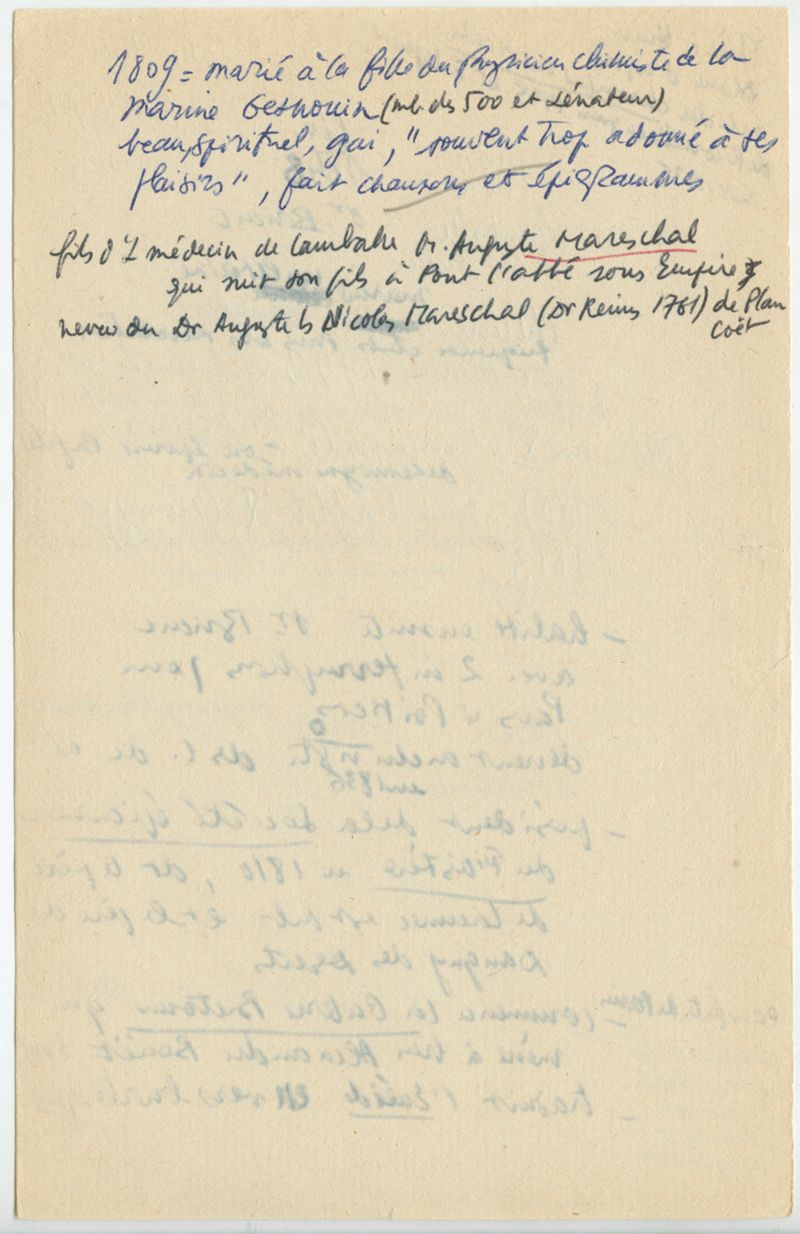 1809 = marié à la fille du physicien chimiste de la
Marine Gesnouin (mb des 500 et sénateur)
beau, spirituel, gai, "souvent trop adonné à ses
plaisirs", fait chansons et épigrammes
fils d'1 médecin de Lamballe Dr. Auguste Mareschal
qui suit son fils à Pont l'abbé sous Empire
neveu du Dr Auguste Nicolas Mareschal (Dr Reims 1761) de Plan
coët